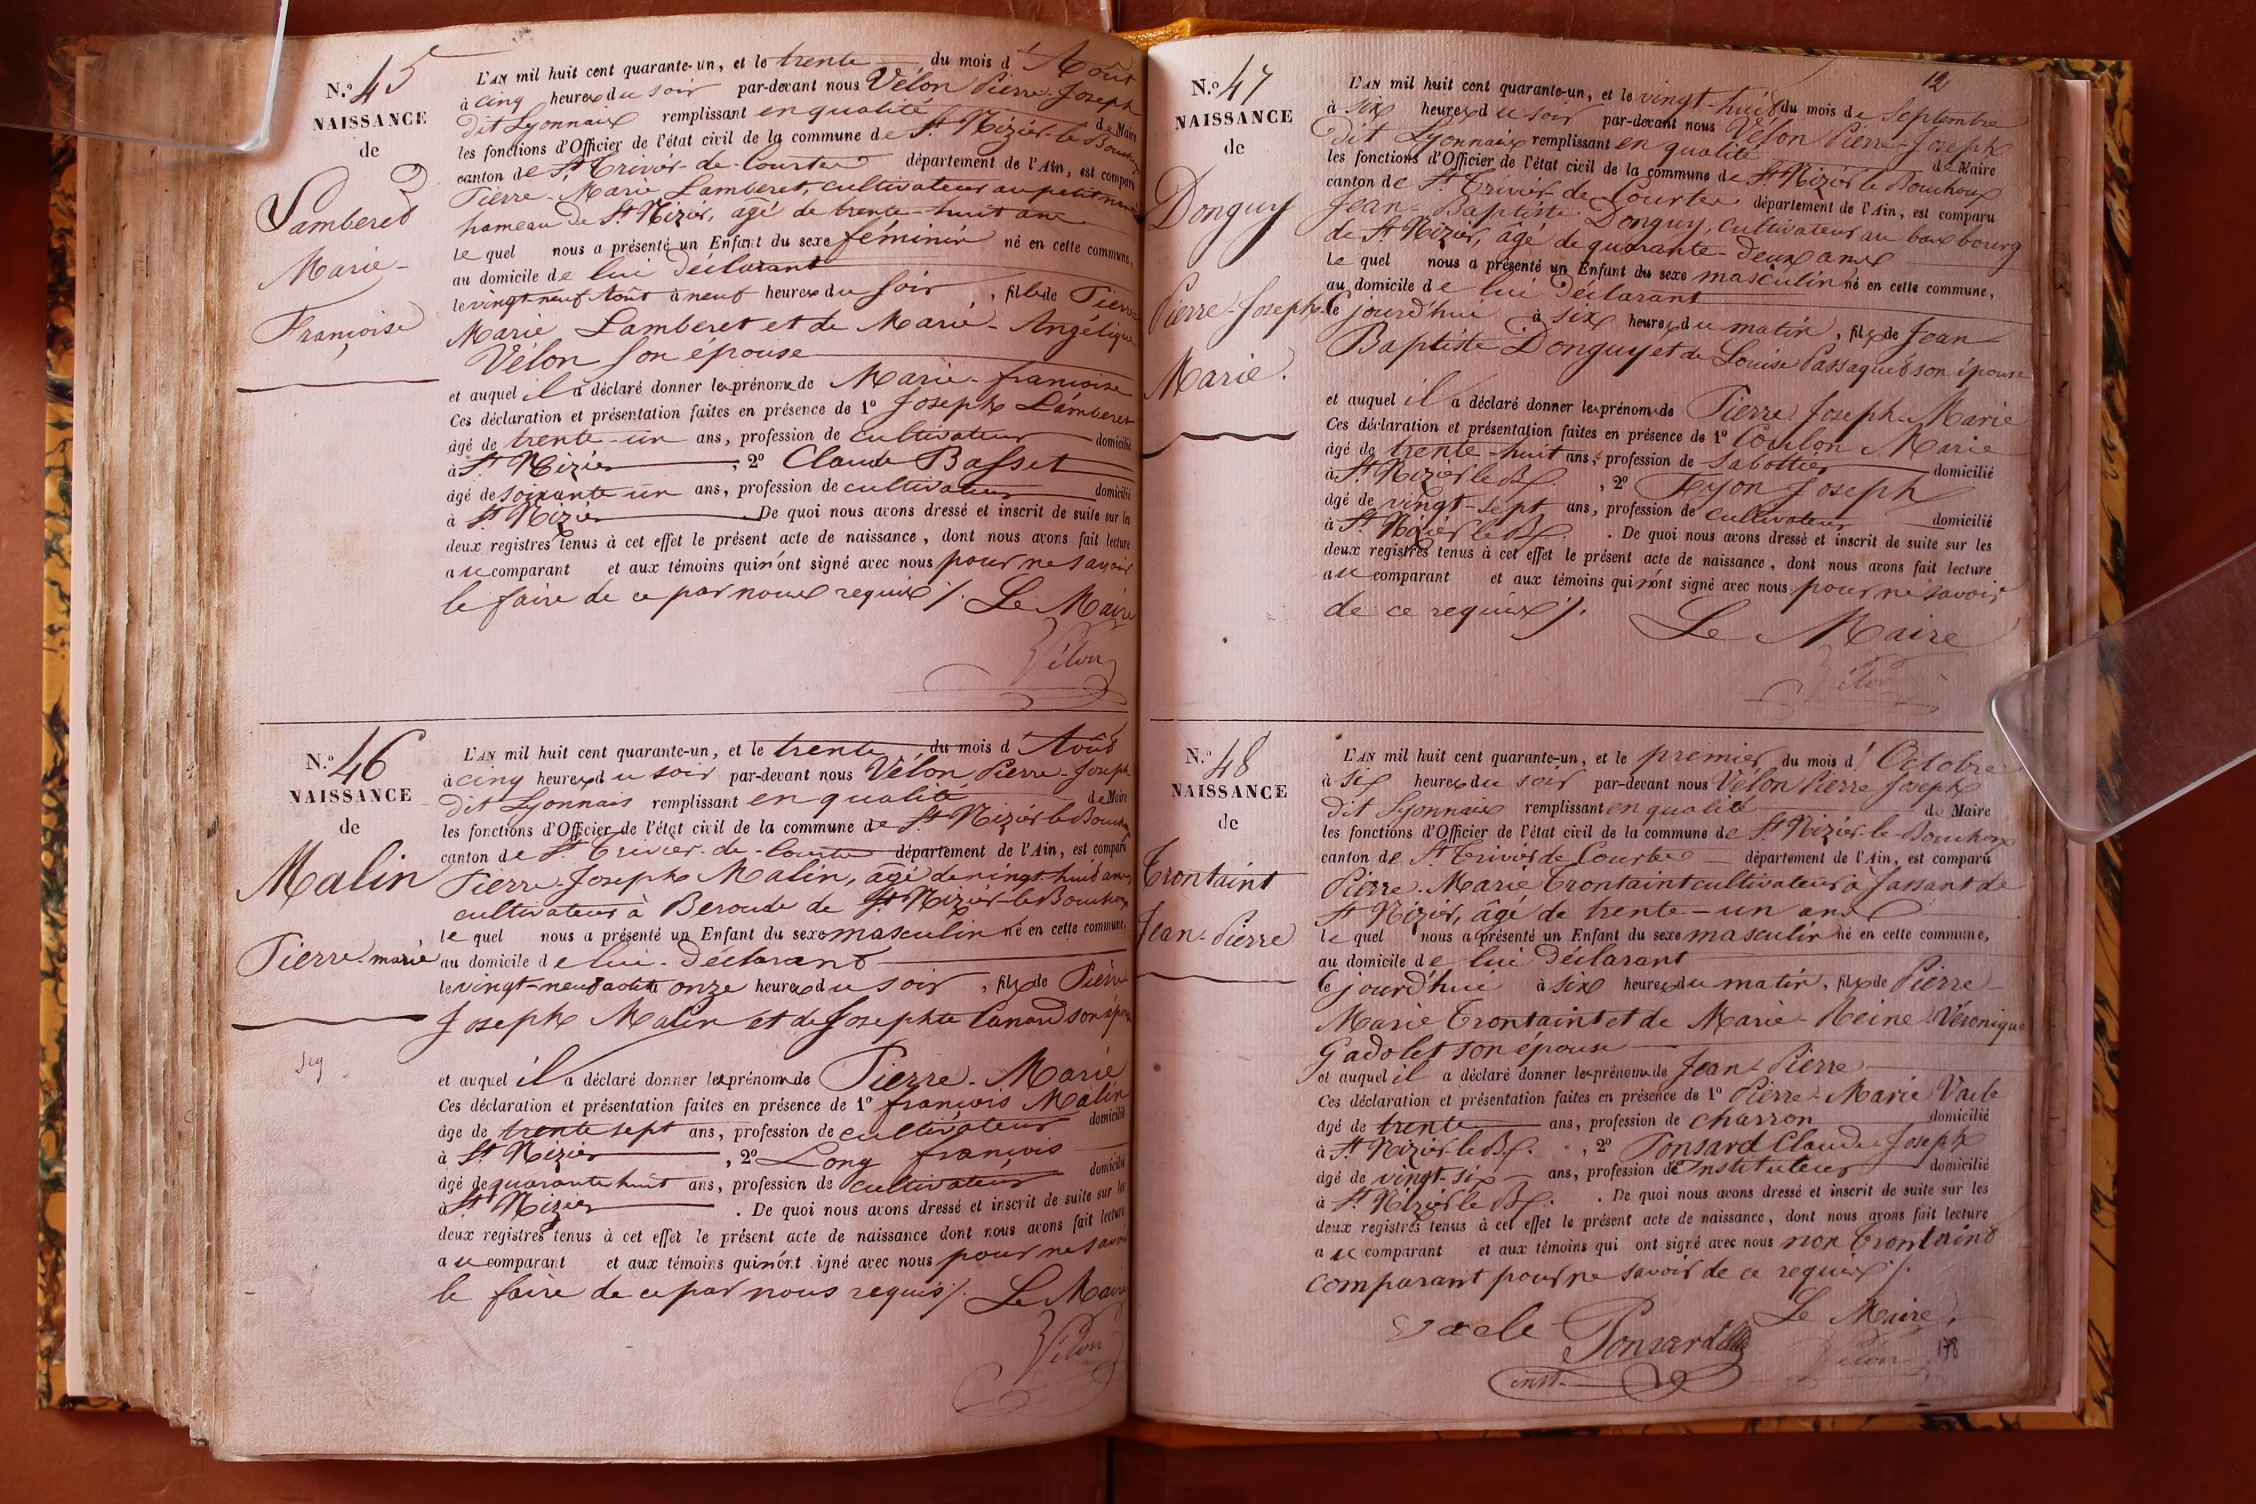 N.o 45
NAISSANCE
de
Lamberet
Marie-
Françoise
L'AN mil huit cent quarante-un, et le trente du mois d'Août
à cinq heures du soir par-devant nous Vélon Pierre-Joseph
dit Lyonnais remplissant en qualité de Maire
les fonctions d'Officier de l'état civil de la commune de St. Nizier-le-Bouchoux
canton de St. Trivier-de-Courtes département de l'Ain, est comparu
Pierre-Marie Lamberet, cultivateur au petit
hameau de St. Nizier, âgé de trente-huit ans
lequel nous a présenté un Enfant du sexe féminin né en cette commune,
au domicile de lui déclarant
le vingt-neuf Août à neuf heures du soir, fille de Pierre
Marie Lamberet et de Marie-Angélique
Vélon son épouse
et auquel il a déclaré donner les prénoms de Marie-françoise
Ces déclaration et présentation faites en présence de 1o Joseph Lamberet
âgé de trente-un ans, profession de cultivateur domicilié
à St. Nizier, 2o Claude Basset
âgé de soixante un ans, profession de cultivateur domicilié
à St. Nizier De quoi nous avons dressé et inscrit de suite sur les
deux registres tenus à cet effet le présent acte de naissance, dont nous avons fait lecture
au comparant et aux témoins qui n'ont signé avec nous pour ne savoir
le faire de ce par nous requis /. Le Maire
Vélon
N.o 46
NAISSANCE
de
Malin
Pierre marie
L'AN mil huit cent quarante-un, et le trente du mois d'Août
à cinq heures du soir par-devant nous Vélon Pierre-Joseph
dit Lyonnais remplissant en qualité de Maire
les fonctions d'Officier de l'état civil de la commune de St. Nizier-le-Bouchoux
canton de St. Trivier-de-Courtes département de l'Ain, est comparu
Pierre-Joseph Malin, âgé de vingt-huit ans,
cultivateur à Beroude de St. Nizier-le-Bouchoux
lequel nous a présenté un Enfant du sexe masculin né en cette commune,
au domicile de lui-déclarant
le vingt-neuf août à onze heures du soir, fils de Pierre
Joseph Malin et de Josephte Canard son épouse
et auquel il a déclaré donner les prénoms de Pierre-Marie
Ces déclaration et présentation faites en présence de 1o françois Malin
âgé de trente sept ans, profession de cultivateur domicilié
à St. Nizier, 2o Long françois
âgé de quarante huit ans, profession de cultivateur domicilié
à St. Nizier. De quoi nous avons dressé et inscrit de suite sur les
deux registres tenus à cet effet le présent acte de naissance dont nous avons fait lecture
au comparant et aux témoins qui n'ont signé avec nous pour ne savoir
le faire de ce par nous requis /. Le Maire
Vélon
12
N.o 47
NAISSANCE
de
Donguy
Pierre-Joseph
Marie.
L'AN mil huit cent quarante-un, et le vingt-huit du mois de Septembre
à six heures du soir par-devant nous Vélon Pierre-Joseph
dit Lyonnais remplissant en qualité de Maire
les fonctions d'Officier de l'état civil de la commune de St. Nizier le Bouchoux
canton de St. Trivier de Courtes département de l'Ain, est comparu
Jean-Baptiste Donguy, cultivateur au bas bourg
de St. Nizier, âgé de quarante-deux ans
lequel nous a présenté un Enfant du sexe masculin né en cette commune,
au domicile de lui déclarant
Ce jourd'hui à six heures du matin, fils de Jean
Baptiste Donguy et de Louise Passaquet son épouse
et auquel il a déclaré donner les prénoms de Pierre Joseph-Marie
Ces déclaration et présentation faites en présence de 1o Coulon Marie
âgé de trente-huit ans, profession de Sabottier domicilié
à St. Nizier le Bx., 2o Joseph
âgé de vingt-sept ans, profession de cultivateur domicilié
à St. Nizier le Bx. De quoi nous avons dressé et inscrit de suite sur les
deux registres tenus à cet effet le présent acte de naissance, dont nous avons fait lecture
au comparant et aux témoins qui n'ont signé avec nous pour ne savoir
de ce requis /. Le Maire
Vélon
N.o 48
NAISSANCE
de
Trontaint
Jean-Pierre
L'AN mil huit cent quarante-un, et le premier du mois d'Octobre
à six heures du soir par-devant nous Vélon Pierre Joseph
dit Lyonnais remplissant en qualité de Maire
les fonctions d'Officier de l'état civil de la commune de St. Nizier-le-Bouchoux
canton de St. Trivier de Courtes département de l'Ain, est comparu
Pierre-Marie Trontaint cultivateur à Jassant de
St. Nizier, âgé de trente-un ans
lequel nous a présenté un Enfant du sexe masculin né en cette commune,
au domicile de lui déclarant
Ce jourd'hui à six heures du matin, fils de Pierre-
Marie Trontaint et de Marie-Reine Véronique
Gadolet son épouse
et auquel il a déclaré donner les prénoms de Jean-Pierre
Ces déclaration et présentation faites en présence de 1o Pierre-Marie Vacle
âgé de trente ans, profession de charron domicilié
à St. Nizier le Bx., 2o Ponsard Claude Joseph
âgé de vingt-six ans, profession de Instituteur domicilié
à St. Nizier le Bx. De quoi nous avons dressé et inscrit de suite sur les
deux registres tenus à cet effet le présent acte de naissance, dont nous avons fait lecture
au comparant et aux témoins qui ont signé avec nous non Trontaint
comparant pour ne savoir de ce requis /.
Le Maire,
Vacle Ponsard
Vélon
inst.
178